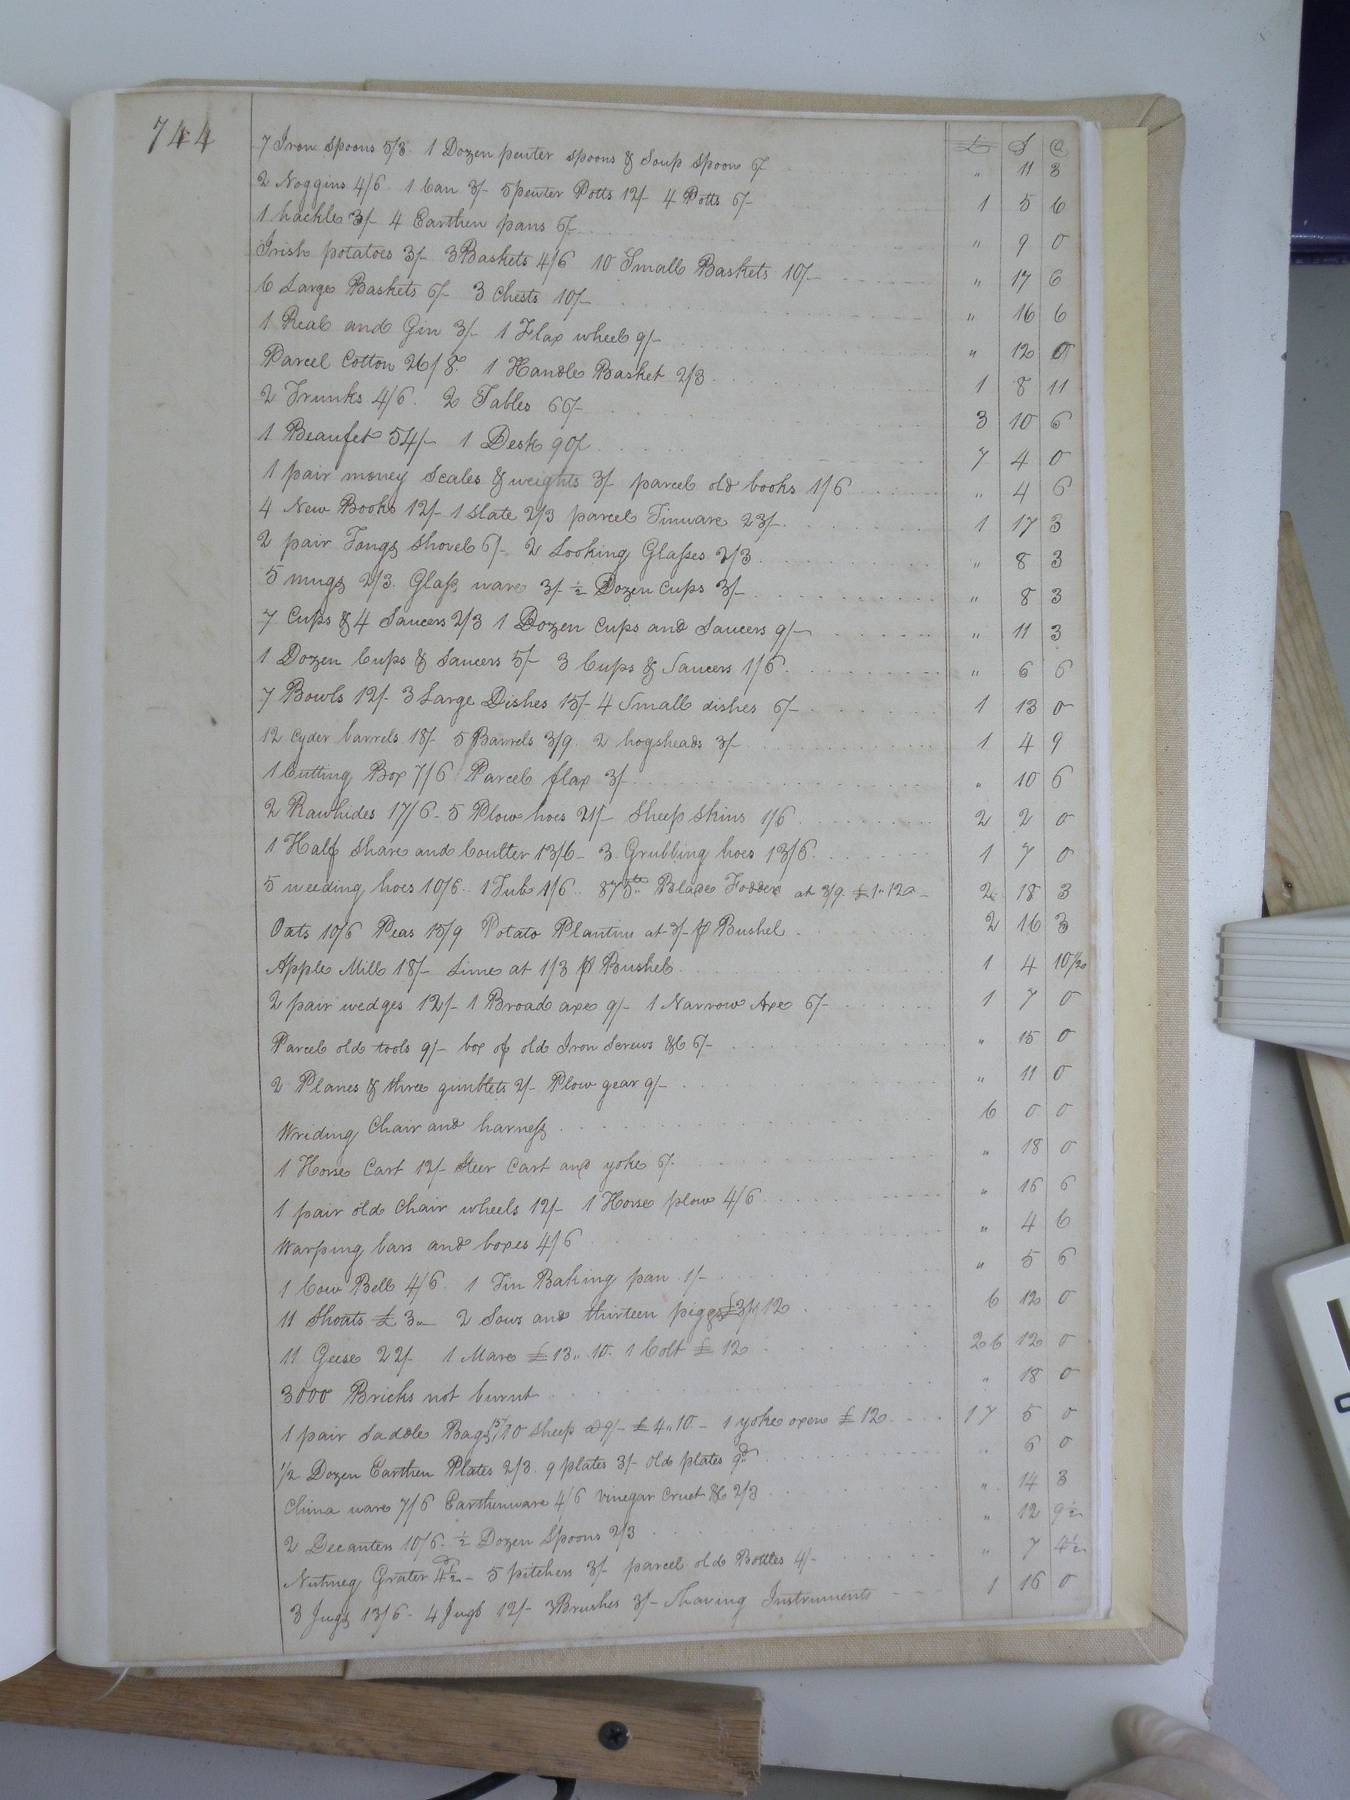 744
£ S d
7 Iron Spoons 5/3. 1 Dozen pewter spoons & Soup Spoon 6/ " 11 3
2 Noggins 4/6 1 Can 3/- 5 pewter Potts 12/- 4 Potts 6/- 1 5 6
1 hackle 3/- 4 Earthen pans 6/- " 9 0
Irish potatoes 3/- 3 Baskets 4/6 10 Small Baskets 10/- " 17 6
6 Large Baskets 6/- 3 Chests 10/- " 16 6
1 Real and Gin 3/- 1 Flax wheel 9/- " 12 0
Parcel Cotton 26/8. 1 Handle Basket 2/3 1 8 11
2 Trunks 4/6. 2 Tables 66/- 3 10 6
1 Beaufet 54/- 1 Desk 90/ 7 4 0
1 pair money Scales & weights 3/- parcel old books 1/6 " 4 6
4 New Books 12/- 1 slate 2/3 parcel Tinware 23/- 1 17 3
2 pair Tongs Shovel 6/- 2 Looking Glasses 2/3 " 8 3
5 mugs 2/3. Glass ware 3/- ½ Dozen Cups 3/- " 8 3
7 Cups & 4 Saucers 2/3 1 Dozen Cups and Saucers 9/- " 11 3
1 Dozen Cups & Saucers 5/- 3 Cups & Saucers 1/6 " 6 6
7 Bowls 12/- 3 Large Dishes 15/- 4 Small dishes 6/- 1 13 0
12 Cyder barrels 18/- 5 Barrels 3/9. 2 hogsheads 3/- 1 4 9
1 Cutting Box 7/6 Parcel flax 3/- " 10 6
2 Rawhides 17/6 - 5 Plow hoes 21/- Sheep Skins 1/6 2 2 0
1 Half Share and Coulter 13/6 - 3 Grubbing hoes 13/6 1 7 0
5 weeding hoes 10/6. 1 Tub 1/6. 875 lb Blade Fodder at 3/9. £1"12 2 18 3
Oats 10/6 Peas 15/9 Potato Plantine at 3/- ⅌ Bushel 2 16 3
Apple Mill 18/- Lime at 1/3 ⅌ Bushel 1 4 10½
2 pair wedges 12/- 1 Broad axe 9/- 1 Narrow Axe 6/- 1 7 0
Parcel old tools 9/- box of old Iron Screws &c 6/- " 15 0
2 Planes & three gimblets 2/- Plow gear 9/- " 11 0
Wriding Chair and harness 6 0 0
1 Horse Cart 12/- Steer Cart and yoke 6/- " 18 0
1 pair old Chair wheels 12/- 1 Horse plow 4/6 " 16 6
Warping bars and boxes 4/6 " 4 6
1 Cow Bell 4/6. 1 Tin Baking pan 1/- " 5 6
11 Shoats £3"- 2 Sows and thirteen piggs £3"12 6 12 0
11 Geese 22/- 1 Mare £13"10. 1 Colt £12 26 12 0
3000 Bricks not burnt " 18 0
1 pair Saddle Bags 15/ 10 Sheep a 9/- £4"10 - 1 yoke oxen £12 17 5 0
½ Dozen Earthen Plates 2/3. 9 plates 3/- old plates 9d " 6 0
China ware 7/6 Earthenware 4/6 Vinegar Cruet &c 2/3 " 14 3
2 Decanters 10/6. ½ Dozen Spoons 2/3 " 12 9½
Nutmeg Grater 4½ - 5 pitchers 3/- parcel old Bottles 4/- " 7 4½
3 Jugs 13/6 - 4 Jugs 12/- 3 Brushes 3/- Shaving Instruments 1 16 0